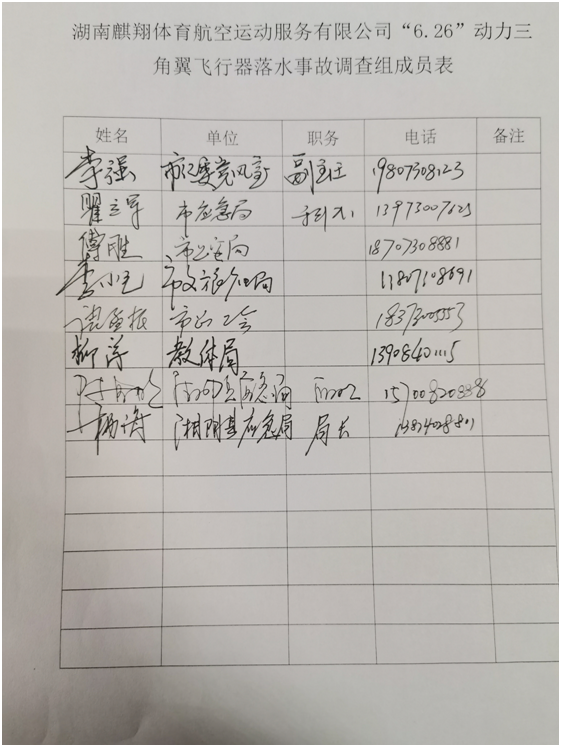 湖南麒翔体育航空运动服务有限公司“6.26”动力三
角翼飞行器落水事故调查组成员表
姓名 单位 职务 电话 备注
李强 市纪委党风室 副主任 19807308123
瞿立军 市应急局 13973007625
傅胜 市公安局 18707308881
李小毛 市文旅广电局
市总工会 18373005553
柳萍 教体局 13908401115
急局 15700820888
杨涛 湘阴县应急局 局长